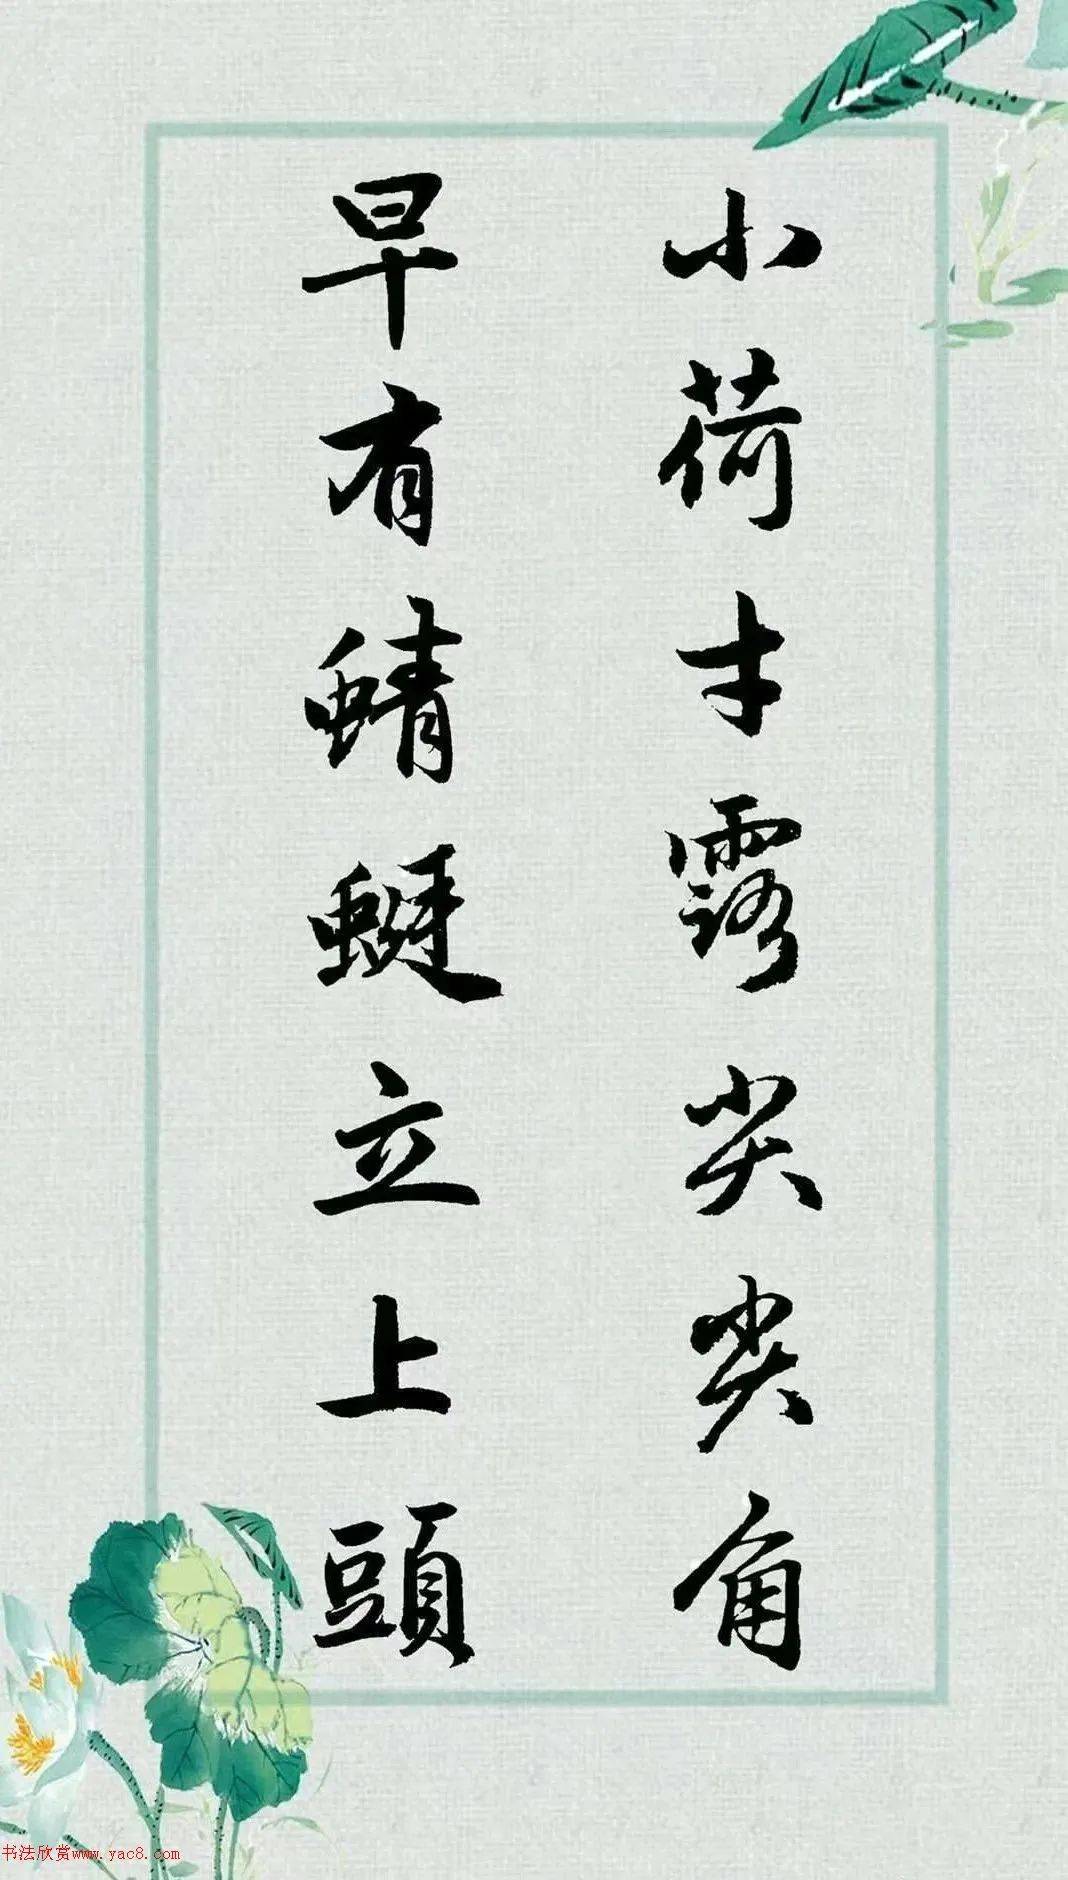 小荷才露尖尖角
早有蜻蜓立上頭
书法欣赏www.yac8.com